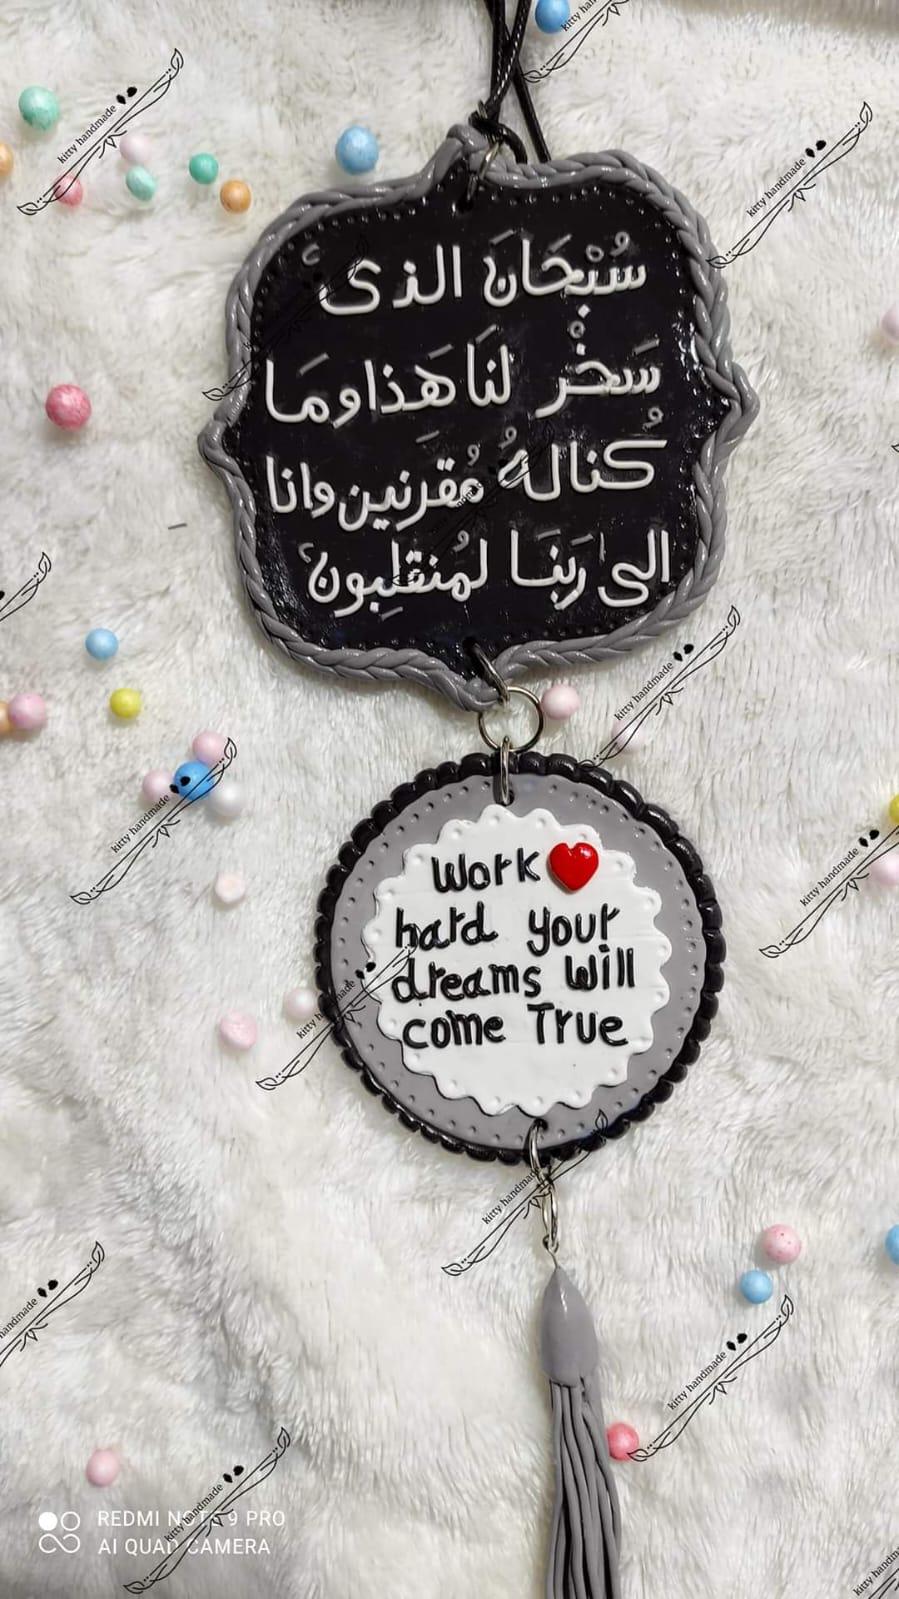 سُبْحَانَ الذى
سَخْر لنَا هَذا ومَا
كُنا لهُ مُقرنين وانا
الى رَبنَا لمُنقلِبون
Work
hard your
dreams will
come True
kitty handmade
kitty handmade
kitty handmade
kitty handmade
kitty handmade
kitty handmade
kitty handmade
kitty handmade
kitty handmade
kitty handmade
REDMI NOTE 9 PRO
AI QUAD CAMERA